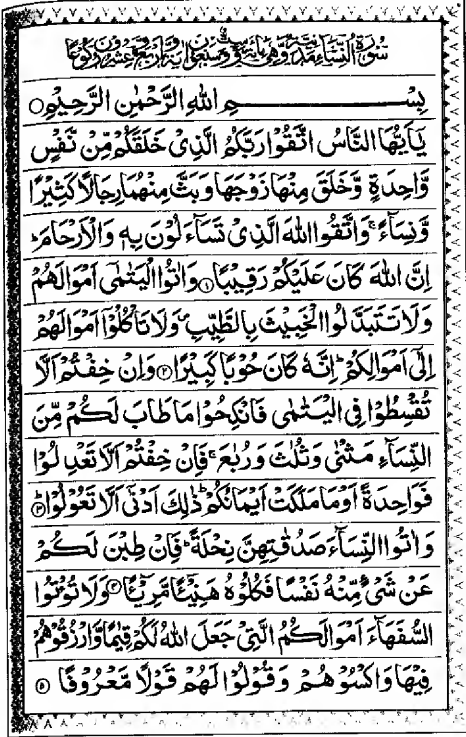 سُوْرَةُ النِّسَاءِ مَدَنِيَّةٌ وَّهِيَ مِائَةٌ وَّسِتٌّ وَّسَبْعُوْنَ اٰيَةً وَّاَرْبَعٌ وَّعِشْرُوْنَ رُكُوْعًا
بِسْمِ اللهِ الرَّحْمٰنِ الرَّحِيْمِ ۝
يٰٓاَيُّهَا النَّاسُ اتَّقُوْا رَبَّكُمُ الَّذِيْ خَلَقَكُمْ مِّنْ نَّفْسٍ
وَّاحِدَةٍ وَّخَلَقَ مِنْهَا زَوْجَهَا وَبَثَّ مِنْهُمَا رِجَالًا كَثِيْرًا
وَّنِسَآءً ۚ وَاتَّقُوا اللهَ الَّذِيْ تَسَآءَلُوْنَ بِهٖ وَالْاَرْحَامَ ؕ
اِنَّ اللهَ كَانَ عَلَيْكُمْ رَقِيْبًا ۝۱ وَاٰتُوا الْيَتٰمٰٓى اَمْوَالَهُمْ
وَلَا تَتَبَدَّلُوا الْخَبِيْثَ بِالطَّيِّبِ ۪ وَلَا تَاْكُلُوْٓا اَمْوَالَهُمْ
اِلٰٓى اَمْوَالِكُمْ ؕ اِنَّهٗ كَانَ حُوْبًا كَبِيْرًا ۝۲ وَاِنْ خِفْتُمْ اَلَّا
تُقْسِطُوْا فِي الْيَتٰمٰى فَانْكِحُوْا مَا طَابَ لَكُمْ مِّنَ
النِّسَآءِ مَثْنٰى وَثُلٰثَ وَرُبٰعَ ۚ فَاِنْ خِفْتُمْ اَلَّا تَعْدِلُوْا
فَوَاحِدَةً اَوْ مَا مَلَكَتْ اَيْمَانُكُمْ ؕ ذٰلِكَ اَدْنٰٓى اَلَّا تَعُوْلُوْا ۝۳
وَاٰتُوا النِّسَآءَ صَدُقٰتِهِنَّ نِحْلَةً ؕ فَاِنْ طِبْنَ لَكُمْ
عَنْ شَيْءٍ مِّنْهُ نَفْسًا فَكُلُوْهُ هَنِيْٓـًٔا مَّرِيْٓـًٔا ۝۴ وَلَا تُؤْتُوا
السُّفَهَآءَ اَمْوَالَكُمُ الَّتِيْ جَعَلَ اللهُ لَكُمْ قِيٰمًا وَّارْزُقُوْهُمْ
فِيْهَا وَاكْسُوْهُمْ وَقُوْلُوْا لَهُمْ قَوْلًا مَّعْرُوْفًا ۝۵